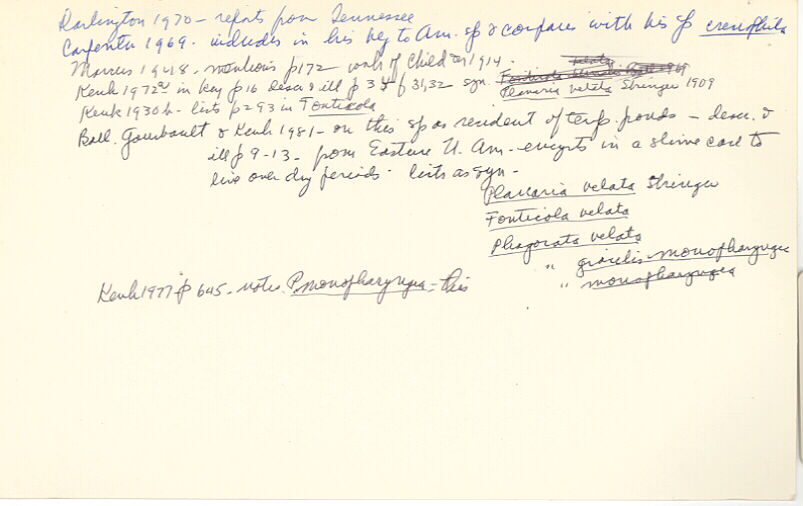 Darlington 1970 - reports from Tennessee
Carpenter 1969 - includes in his key to Am. sp & compares with his sp crenophila
Marcus 1948 - mentions p172 work of Child as 1914.
Kenk 1972a in key p16 descr & ill p 34 f 31,32 syn. Planaria velata Stringer 1909
Kenk 1930b - lists p293 in Fonticola
Ball, Gourbault & Kenk 1981 - on this sp as resident of temp. ponds - descr. &
ill p 9-13 - from Eastern N. Am. - encysts in a slime coat to
live over dry periods - lists as syn -
Planaria velata Stringer
Fonticola velata
Phagocata velata
" gracilis monopharyngea
" monopharyngea
Kenk 1977 p 645 - notes P. monopharyngea = this